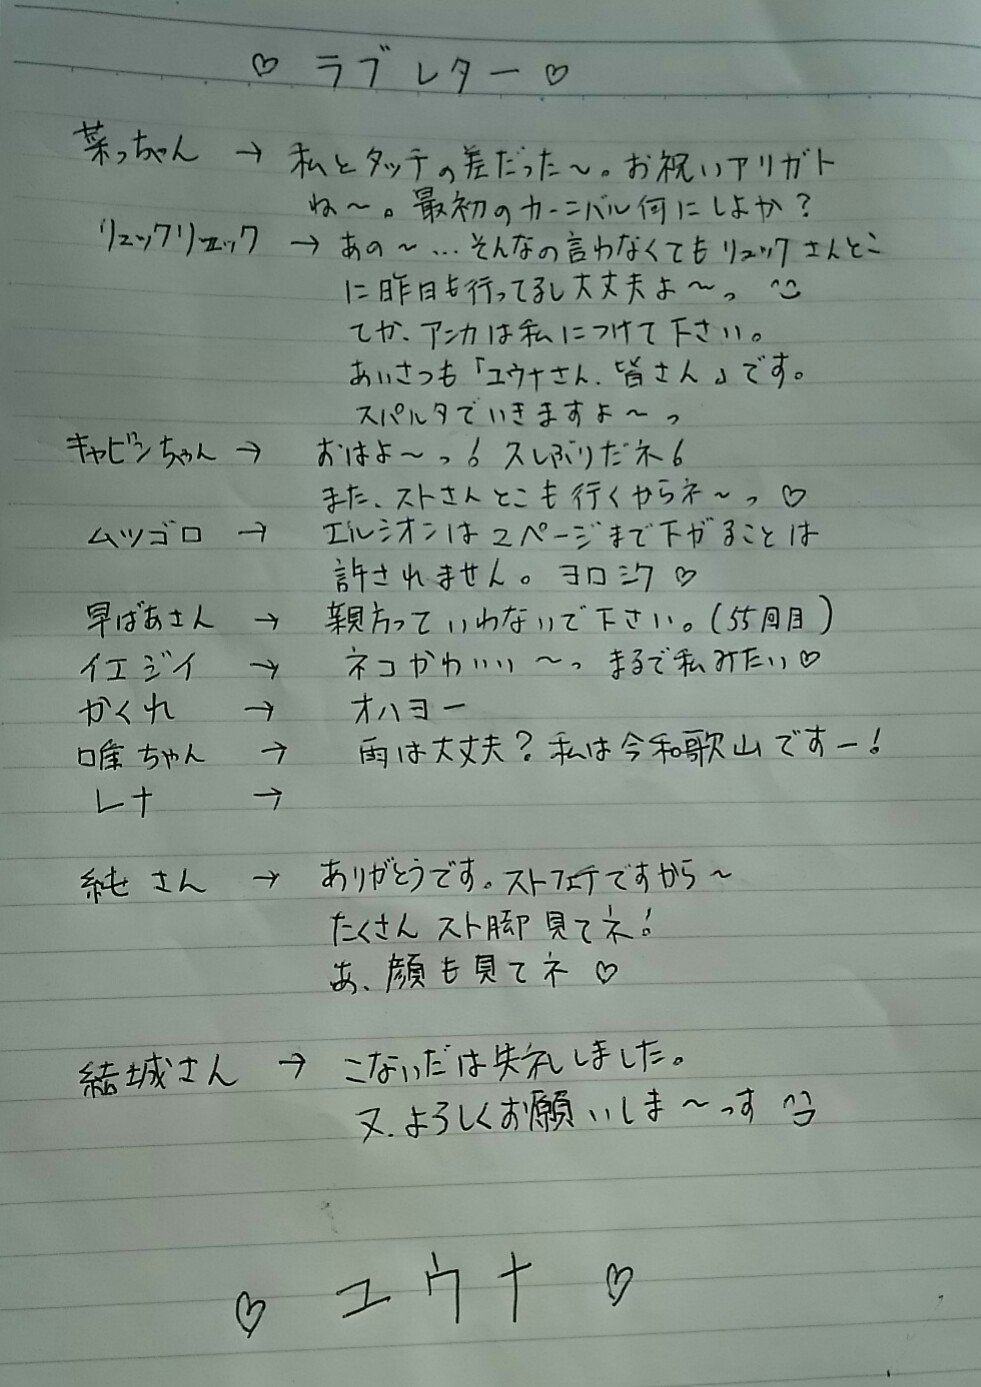 ♡ ラブレター ♡
菜っちゃん → 私とタッチの差だった〜。お祝いアリガト
ね〜。最初のカーニバル何にしよか?
リュックリュック → あの〜…そんなの言わなくてもリュックさんとこ
に昨日も行ってるし大丈夫よ〜っ ^^
てか、アンカは私につけて下さい。
あいさつも「ユウナさん、皆さん」です。
スパルタでいきますよ〜っ
キャビンちゃん → おはよ〜っ! 久しぶりだネ!
また、ストさんとこも行くからネ〜っ ♡
ムツゴロ → エルシオンは2ページまで下がることは
許されません。ヨロシク ♡
早ばあさん → 親方っていわないで下さい。(55回目)
イエジイ → ネコかわいい〜っ まるで私みたい♡
かくれ → オハヨー
唯ちゃん → 雨は大丈夫?私は今和歌山ですー!
レナ →
純さん → ありがとうです。ストフェチですから〜
たくさんスト脚見てネ!
あ、顔も見てネ ♡
結城さん → こないだは失礼しました。
又、よろしくお願いしま〜っす ^^
♡ ユウナ ♡